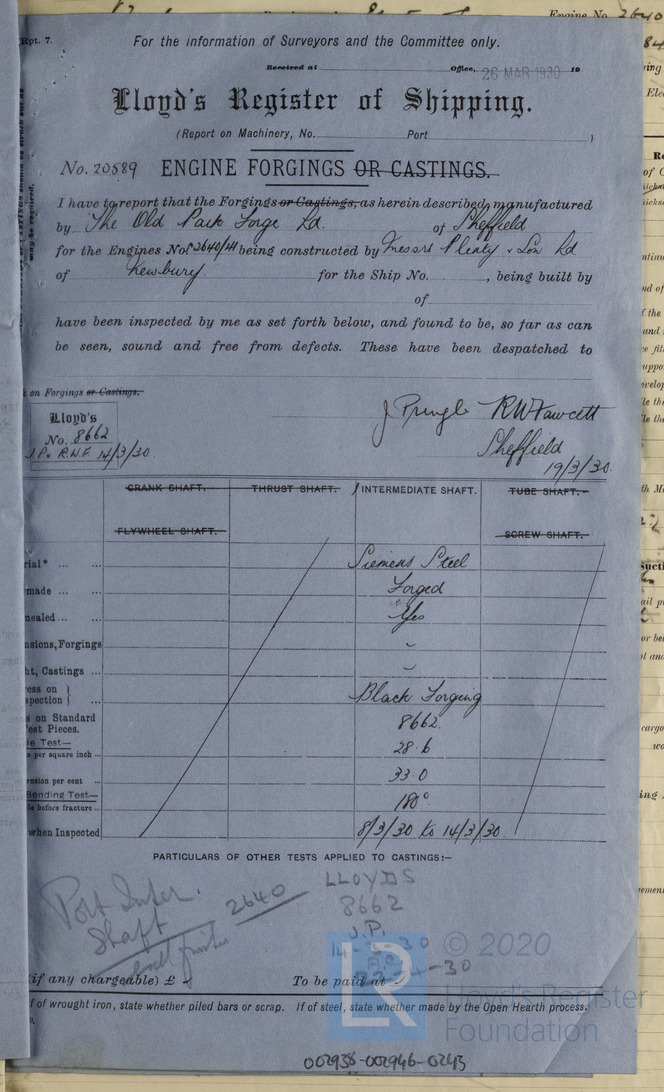 Engine No. 2640
Rpt. 7.
For the information of Surveyors and the Committee only.
Received at Office, 26 MAR 1930 19
Lloyd's Register of Shipping.
(Report on Machinery, No. Port )
No. 20589 ENGINE FORGINGS OR CASTINGS.
I have to report that the Forgings or Castings, as herein described, manufactured
by The Old Park Forge Ld. of Sheffield
for the Engines Nos 2640/41 being constructed by Messrs Plenty & Son Ld
of Newbury for the Ship No. , being built by
of
have been inspected by me as set forth below, and found to be, so far as can
be seen, sound and free from defects. These have been despatched to
on Forgings or Castings.
Lloyd's
No. 8662
J.P. R.W.F. 14/3/30
J Pringle RW Fawcett
Sheffield
19/3/30.
CRANK SHAFT. THRUST SHAFT. INTERMEDIATE SHAFT. TUBE SHAFT.
FLYWHEEL SHAFT. SCREW SHAFT.
rial* ... ... Siemens Steel
made ... ... Forged
nealed ... ... Yes
nsions, Forgings
ht, Castings ...
ess on
spection Black Forging
s on Standard
est Pieces. 8662.
le Test—
s per square inch ... 28.6
ension per cent ... 33.0
Bending Test—
le before fracture ... 180°
when Inspected 8/3/30 to 14/3/30
PARTICULARS OF OTHER TESTS APPLIED TO CASTINGS:—
Port Inter.
Shaft
2640
LLOYDS
8662
J.P.
14-3-30
(if any chargeable) £ To be paid at
If of wrought iron, state whether piled bars or scrap. If of steel, state whether made by the Open Hearth process.
LR
© 2020
Lloyd's Register
Foundation
002938-002946-0243